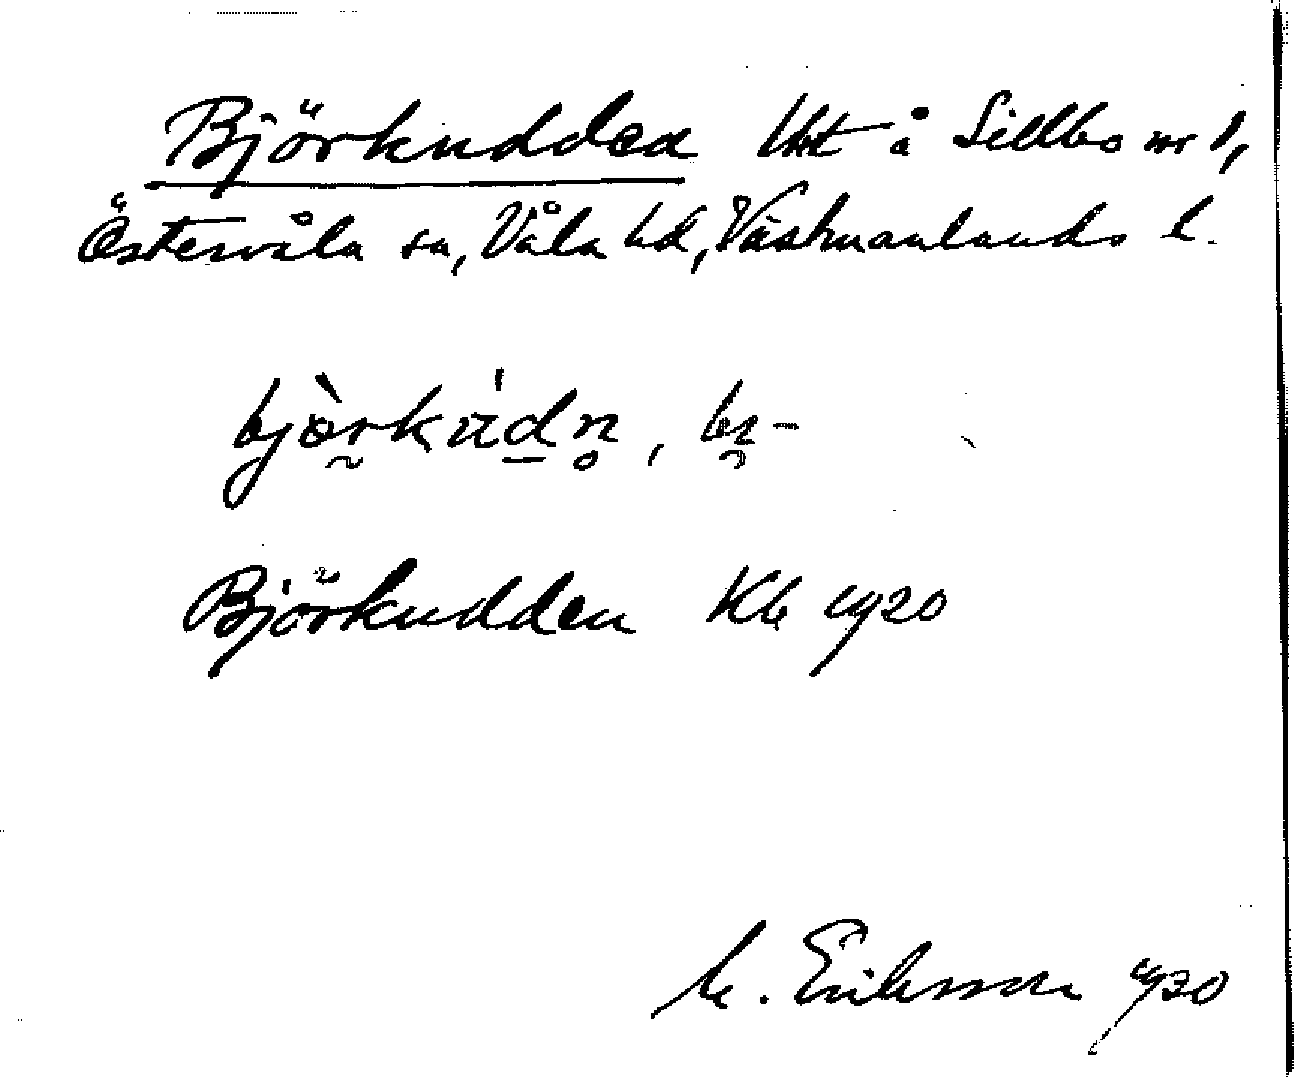 Björkudden lht å Sillbo nr 1,
Östervåla sn, Våla hd, Västmanlands l.
bjö̀rkúdn̥, bι-
Björkudden Kb 1920
M. Eriksson 1930